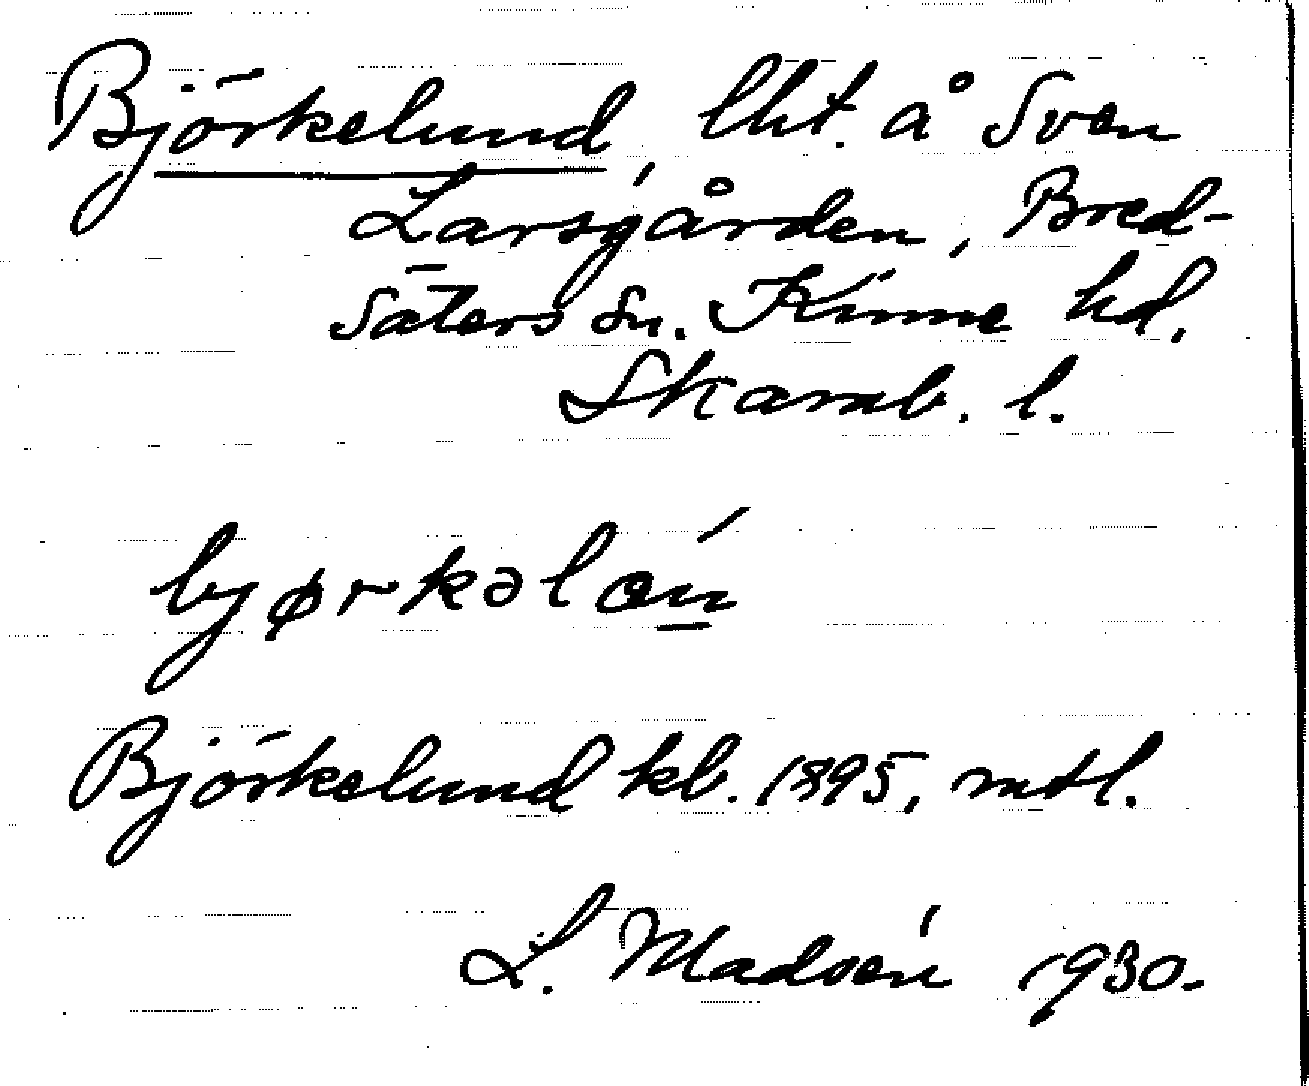 Björkelund, lht. å Sven
Larsgården, Bred-
säters sn. Kinne hd.
Skarab. l.
bjørkəlœń
Björkelund kb. 1895, mtl.
L. Madsén 1930.